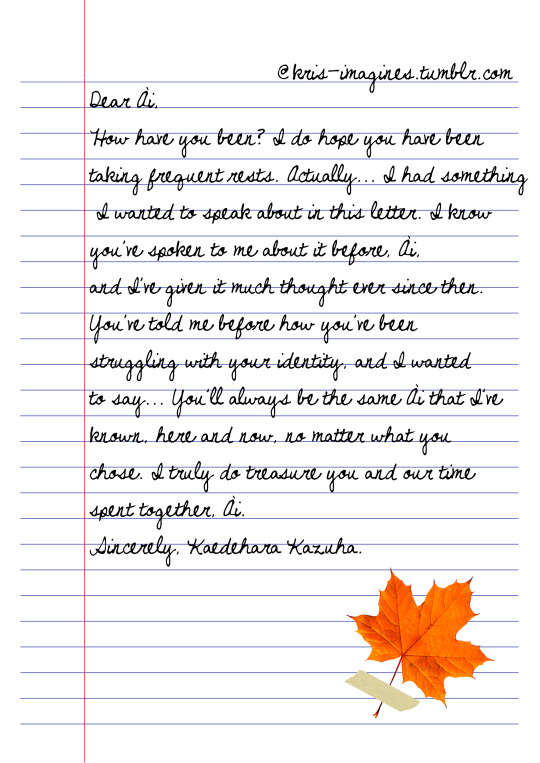 @kris-imagines.tumblr.com
Dear Ài,
How have you been? I do hope you have been
taking frequent rests. Actually... I had something
I wanted to speak about in this letter. I know
you've spoken to me about it before, Ài,
and I've given it much thought ever since then.
You've told me before how you've been
struggling with your identity, and I wanted
to say... You'll always be the same Ài that I've
known, here and now, no matter what you
chose. I truly do treasure you and our time
spent together, Ài.
Sincerely, Kaedehara Kazuha.